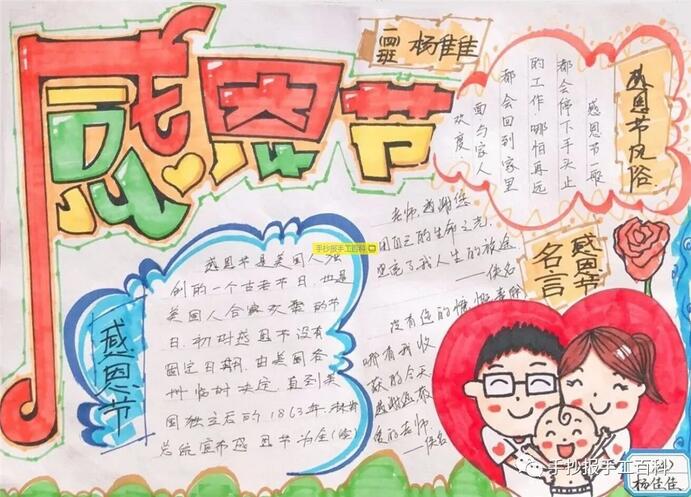 感恩节
(四)班
杨佳佳
感恩节风俗
感恩节一般
都会停下手头止
的工作,哪怕再远
都会回到家里
面与家人
欢度.
手抄报手工百科
感恩节
感恩节是美国人独
创的一个古老节日,也是
美国人合家欢聚的节
日.初时感恩节没有
固定日期,由美国各
州临时决定.直到美
国独立后的1863年,林肯
总统宣布感恩节为全(国)
感恩节
名言
老师,感谢您
用自己的生命之光,
照亮了我人生的旅途
——佚名
没有您的慷慨奉献
哪有我收
获的今天
感谢您敬
爱的老师.
——佚名
手抄报手工百科
杨佳佳